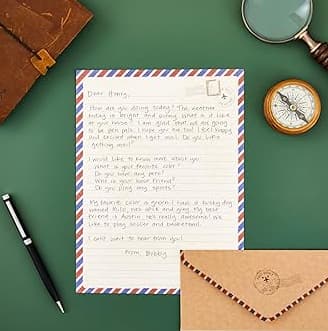 Dear Henry,
How are you doing today? The weather
today is bright and sunny. What is it like
at your house? I am glad that we are going
to be pen pals. I hope you are too! I feel happy
and excited when I get mail. Do you like
getting mail?
I would like to know more about you.
What is your favorite color?
Do you have any pets?
Who is your best friend?
Do you play any sports?
My favorite color is green. I have a
named Milo, he's and gray. My best
friend is Austin. He's really awesome! We
like to play soccer and basketball.
I can't wait to hear from you!
From, Bobby